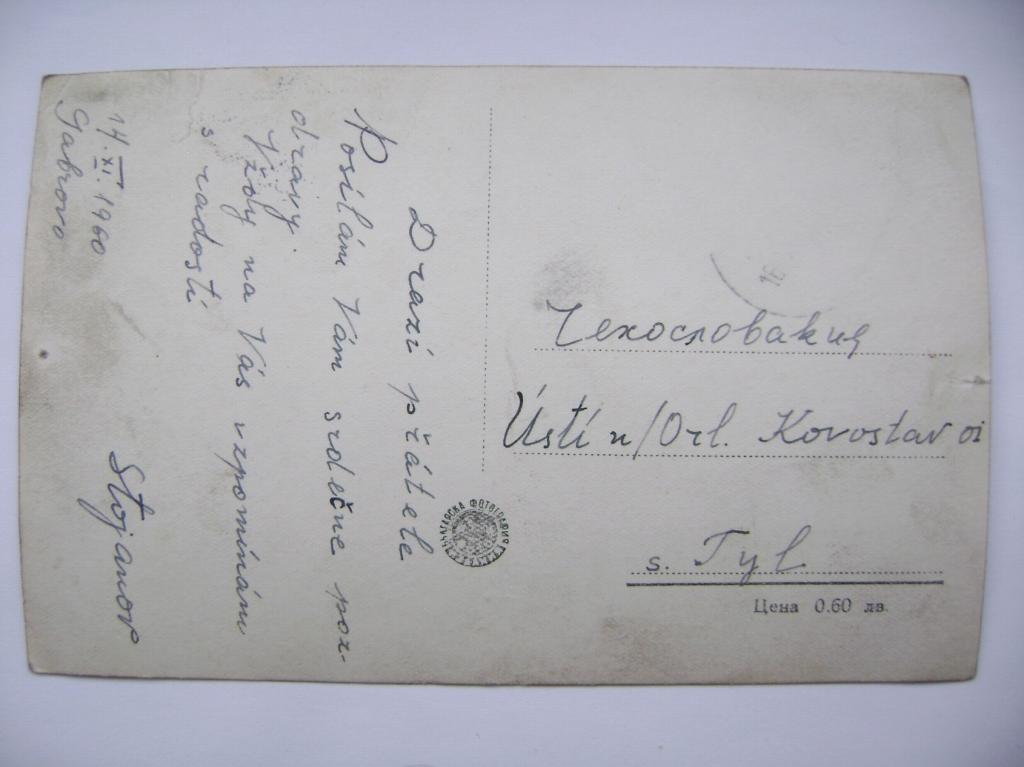 Drazí přátele
Posílám Vám srdečne poz-
dravy.
Vždy na Vás vzpomínám
s radostí
Stojanov
14.XI.1960
Gabrovo
Чехословакия
Ústí n/Orl. Kovostav
s. Tyl
Цена 0.60 лв.
БЪЛГАРСКА ФОТОГРАФИЯ